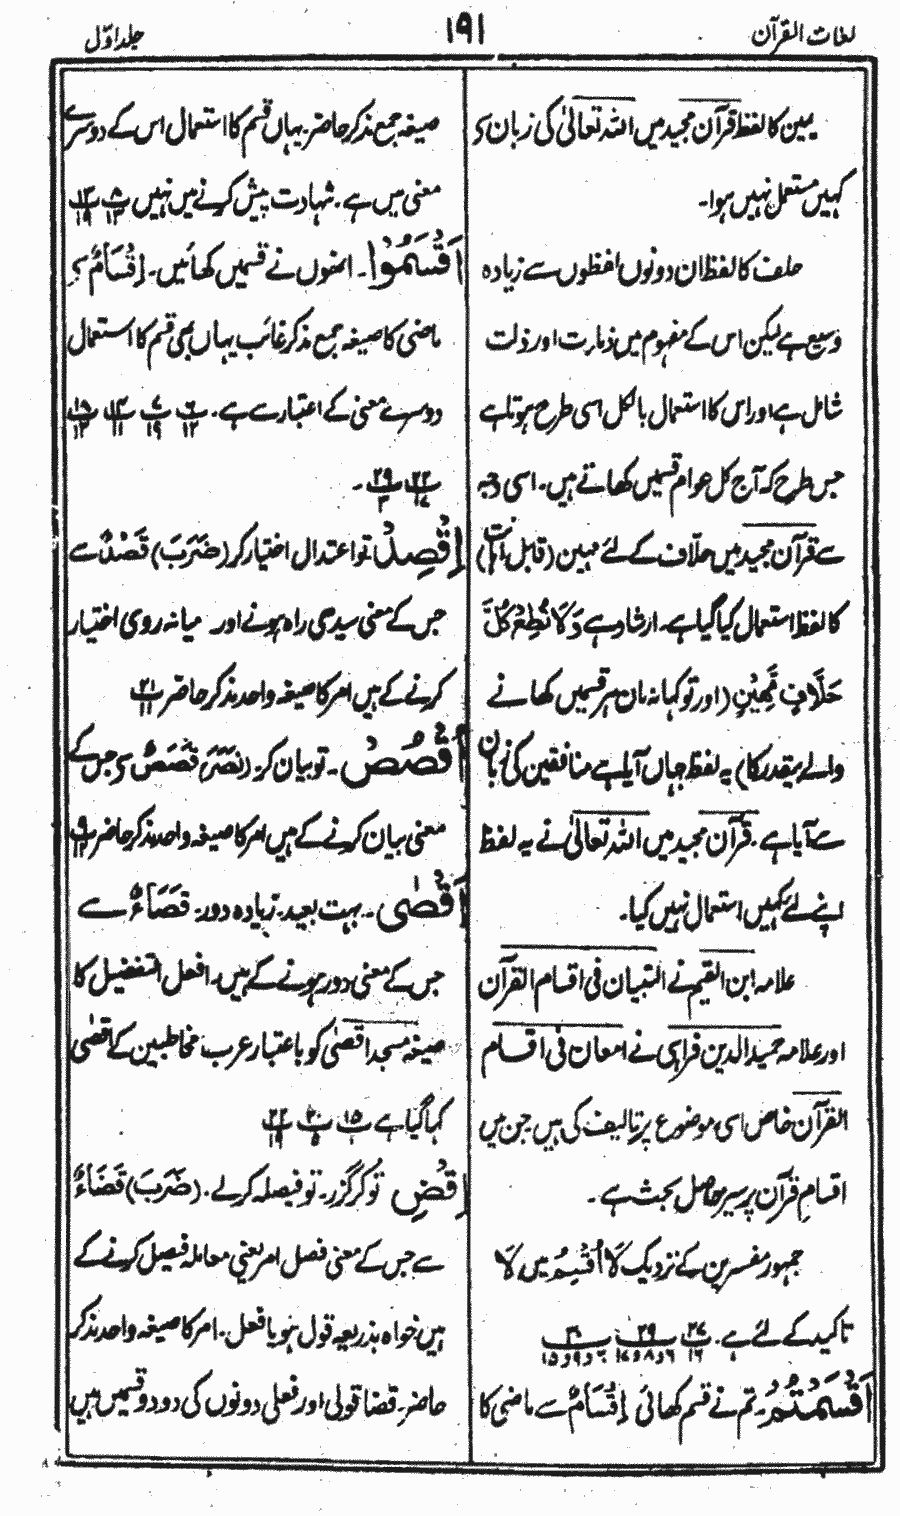 لغات القرآن
۱۹۱
جلد اوّل
یمین کا لفظ قرآن مجید میں اللہ تعالیٰ کی زبان کر
کہیں مستعمل نہیں ہوا۔
حلف کا لفظ ان دونوں لفظوں سے زیادہ
وسیع ہے لیکن اس کے مفہوم میں ذمارت اور ذلت
شامل ہے اور اس کا استعمال بالکل اسی طرح ہوتا ہے
جس طرح کہ آج کل عوام قسمیں کھاتے ہیں۔ اسی وجہ
سے قرآن مجید میں حلّاف کے لئے مہین (قابل اہانت)
کا لفظ استعمال کیا گیا ہے۔ ارشاد ہے وَلَا تُطِعْ كُلَّ
حَلَّافٍ مَّهِيْنٍ (اور تو کہا نہ مان ہر قسمیں کھانے
والے بیقدر کا) یہ لفظ جہاں آیا ہے منافقین کی زبان
سے آیا ہے۔ قرآن مجید میں اللہ تعالیٰ نے یہ لفظ
اپنے لئے کہیں استعمال نہیں کیا۔
علامہ ابن القیم نے التبیان فی اقسام القرآن
اور علامہ حمید الدین فراہی نے امعان فی اقسام
القرآن خاص اسی موضوع پر تالیف کی ہیں جن میں
اقسامِ قرآن پر سیر حاصل بحث ہے۔
جمہور مفسرین کے نزدیک لَا اُقْسِمُ میں لَا
تاکید کے لئے ہے۔ ۲۷/۱۶ ۲۹
اَقْسَمْتُمْ۔ تم نے قسم کھائی اِقْسَامٌ سے ماضی کا
صیغہ جمع مذکر حاضر۔ یہاں قسم کا استعمال اس کے دوسرے
معنی میں ہے۔ شہادت پیش کرنے میں نہیں ۸/۱۲ ۱۳/۱۹
اَقْسَمُوْا۔ انھوں نے قسمیں کھائیں۔ اِقْسَامٌ سے
ماضی کا صیغہ جمع مذکر غائب یہاں بھی قسم کا استعمال
دوسرے معنی کے اعتبار سے ہے۔ ۶/۱۲ ۷/۱۹ ۱۴/۱۱ ۱۸/۱۳
۲۲/۱۷ ۲۹/۳۔
اِقْصِدْ تو اعتدال اختیار کر (ضَرَبَ) قَصْدٌ سے
جس کے معنی سیدھی راہ ہونے اور۔ میانہ روی اختیار
کرنے کے ہیں امر کا صیغہ واحد مذکر حاضر ۲۱/۱۱
اُقْصُصْ۔ تو بیان کر۔ (نَصَرَ) قَصَصٌ سے جس کے
معنی بیان کرنے کے ہیں امر کا صیغہ واحد مذکر حاضر ۹/۱۲
اَقْصٰی۔ بہت بعید۔ زیادہ دور۔ قَصَاءٌ سے
جس کے معنی دور ہونے کے ہیں۔ افعل التفضیل کا
صیغہ مسجد اقصیٰ کو باعتبار عرب مخاطبین کے اقصٰی
کہا گیا ہے ۱۵/۱ ۲۰/۵ ۲۲/۱۹
اِقْضِ تو کر گزر۔ تو فیصلہ کر لے۔ (ضَرَبَ) قَضَاءٌ
سے جس کے معنی فصل امر یعنی معاملہ فیصل کرنے کے
ہیں خواہ بذریعہ قول ہو یا فعل۔ امر کا صیغہ واحد مذکر
حاضر۔ قضا قولی اور فعلی دونوں کی دو دو قسمیں ہیں